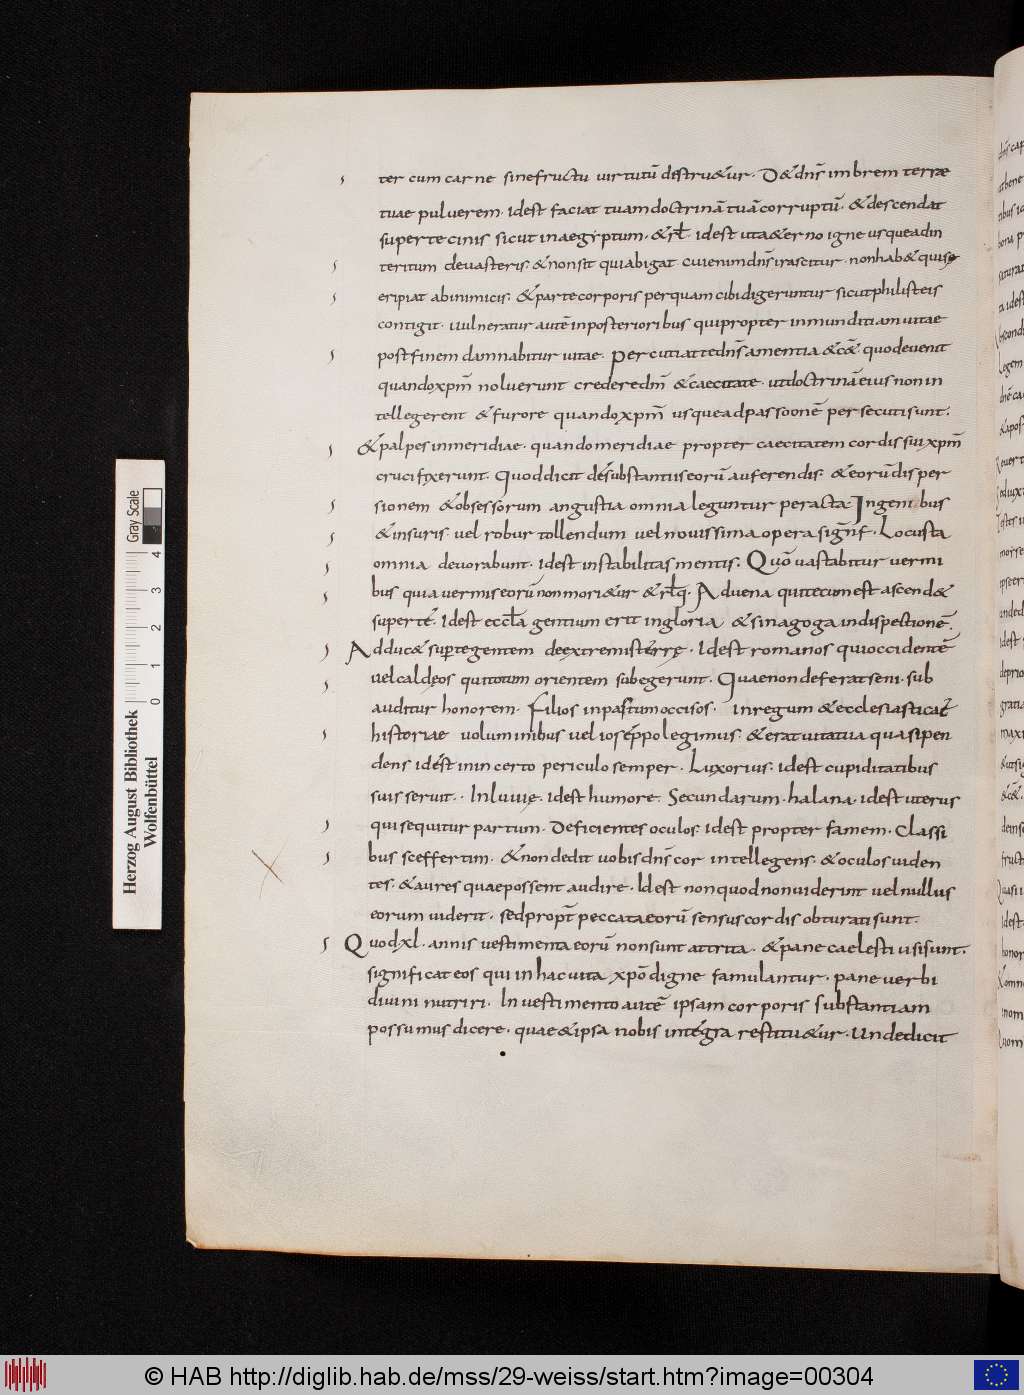 ter cum carne sine fructu uirtutū destru&ur. D& dn̄s imbrem terrae
tuae puluerem. idest faciat tuam doctrinā tuā corruptū. & descendat
super te cinis sicut in aegyptum. & rł. idest uita &erno igne usque ad in
teritum deuasteris. & non sit qui abigat cui enim dn̄s irascitur. non hab& quis
eripiat ab inimicis. & parte corporis per quam cibi digeruntur sicut philisteis
contigit. uulneratur autē in posterioribus qui propter inmunditiam uitae
post finem damnabitur uitae. Percutiat te dn̄s amentia & c&̄ quod euenit
quando xpm̄ noluerunt credere dm̄ & caecitate. ut doctrinā eius non in
tellegerent & furore quando xpm̄ usque ad passionē persecuti sunt.
& palpes in meridiae. quando meridiae propter caecitatem cordis sui xpm̄
crucifyxerunt. Quod dicit de substantiis eorū auferendis. & eorū disper
sionem & obsessorum angustia omnia leguntur peracta. Ingeni bus
& insuris. uel robur tollendum uel nouissima opera sign̄f. Locusta
omnia deuorabunt. idest instabilitas mentis. Quō uastabitur uermi
bus quia uermis eorū non mori&ur & rłq. Aduena qui tecum est ascend&
super te. idest eccła gentium erit in gloria & sinagoga in dispectionē.
Adduc& super te gentem de extremis terrę. Idest romanos qui occidentē
uel caldęos qui totum orientem subegerunt. Quae non deferat seni. sub
auditur honorem. Filios in pastum occisos. in regum & ecclesiasticae
historiae uoluminibus uel ioseppo legimus. & erat uita tua quasi pen
dens idest in incerto periculo semper. Luxorius. idest cupiditatibus
suis seruit. In luuię. idest humore. Secundarum. halana. idest uterus
qui sequitur partum. Deficientes oculos. idest propter famem. Classi
bus sceffertim. & non dedit uobis dn̄s cor intellegens. & oculos uiden
tes. & aures quae possent audire. Idest non quod non uiderint uel nullus
eorum uiderit. sed propt̄ peccata eorū sensus cordis obturati sunt.
Quod xl. annis uestimenta eorū non sunt attrita. & pane caelesti uisi sunt.
significat eos qui in hac uita xpō digne famulantur. pane uerbi
diuini nutriri. In uestimento autē ipsam corporis substantiam
possumus dicere. quae & ipsa nobis integra restitu&ur. Unde dicit
Herzog August Bibliothek
Wolfenbüttel
Gray Scale
0 1 2 3 4
© HAB http://diglib.hab.de/mss/29-weiss/start.htm?image=00304